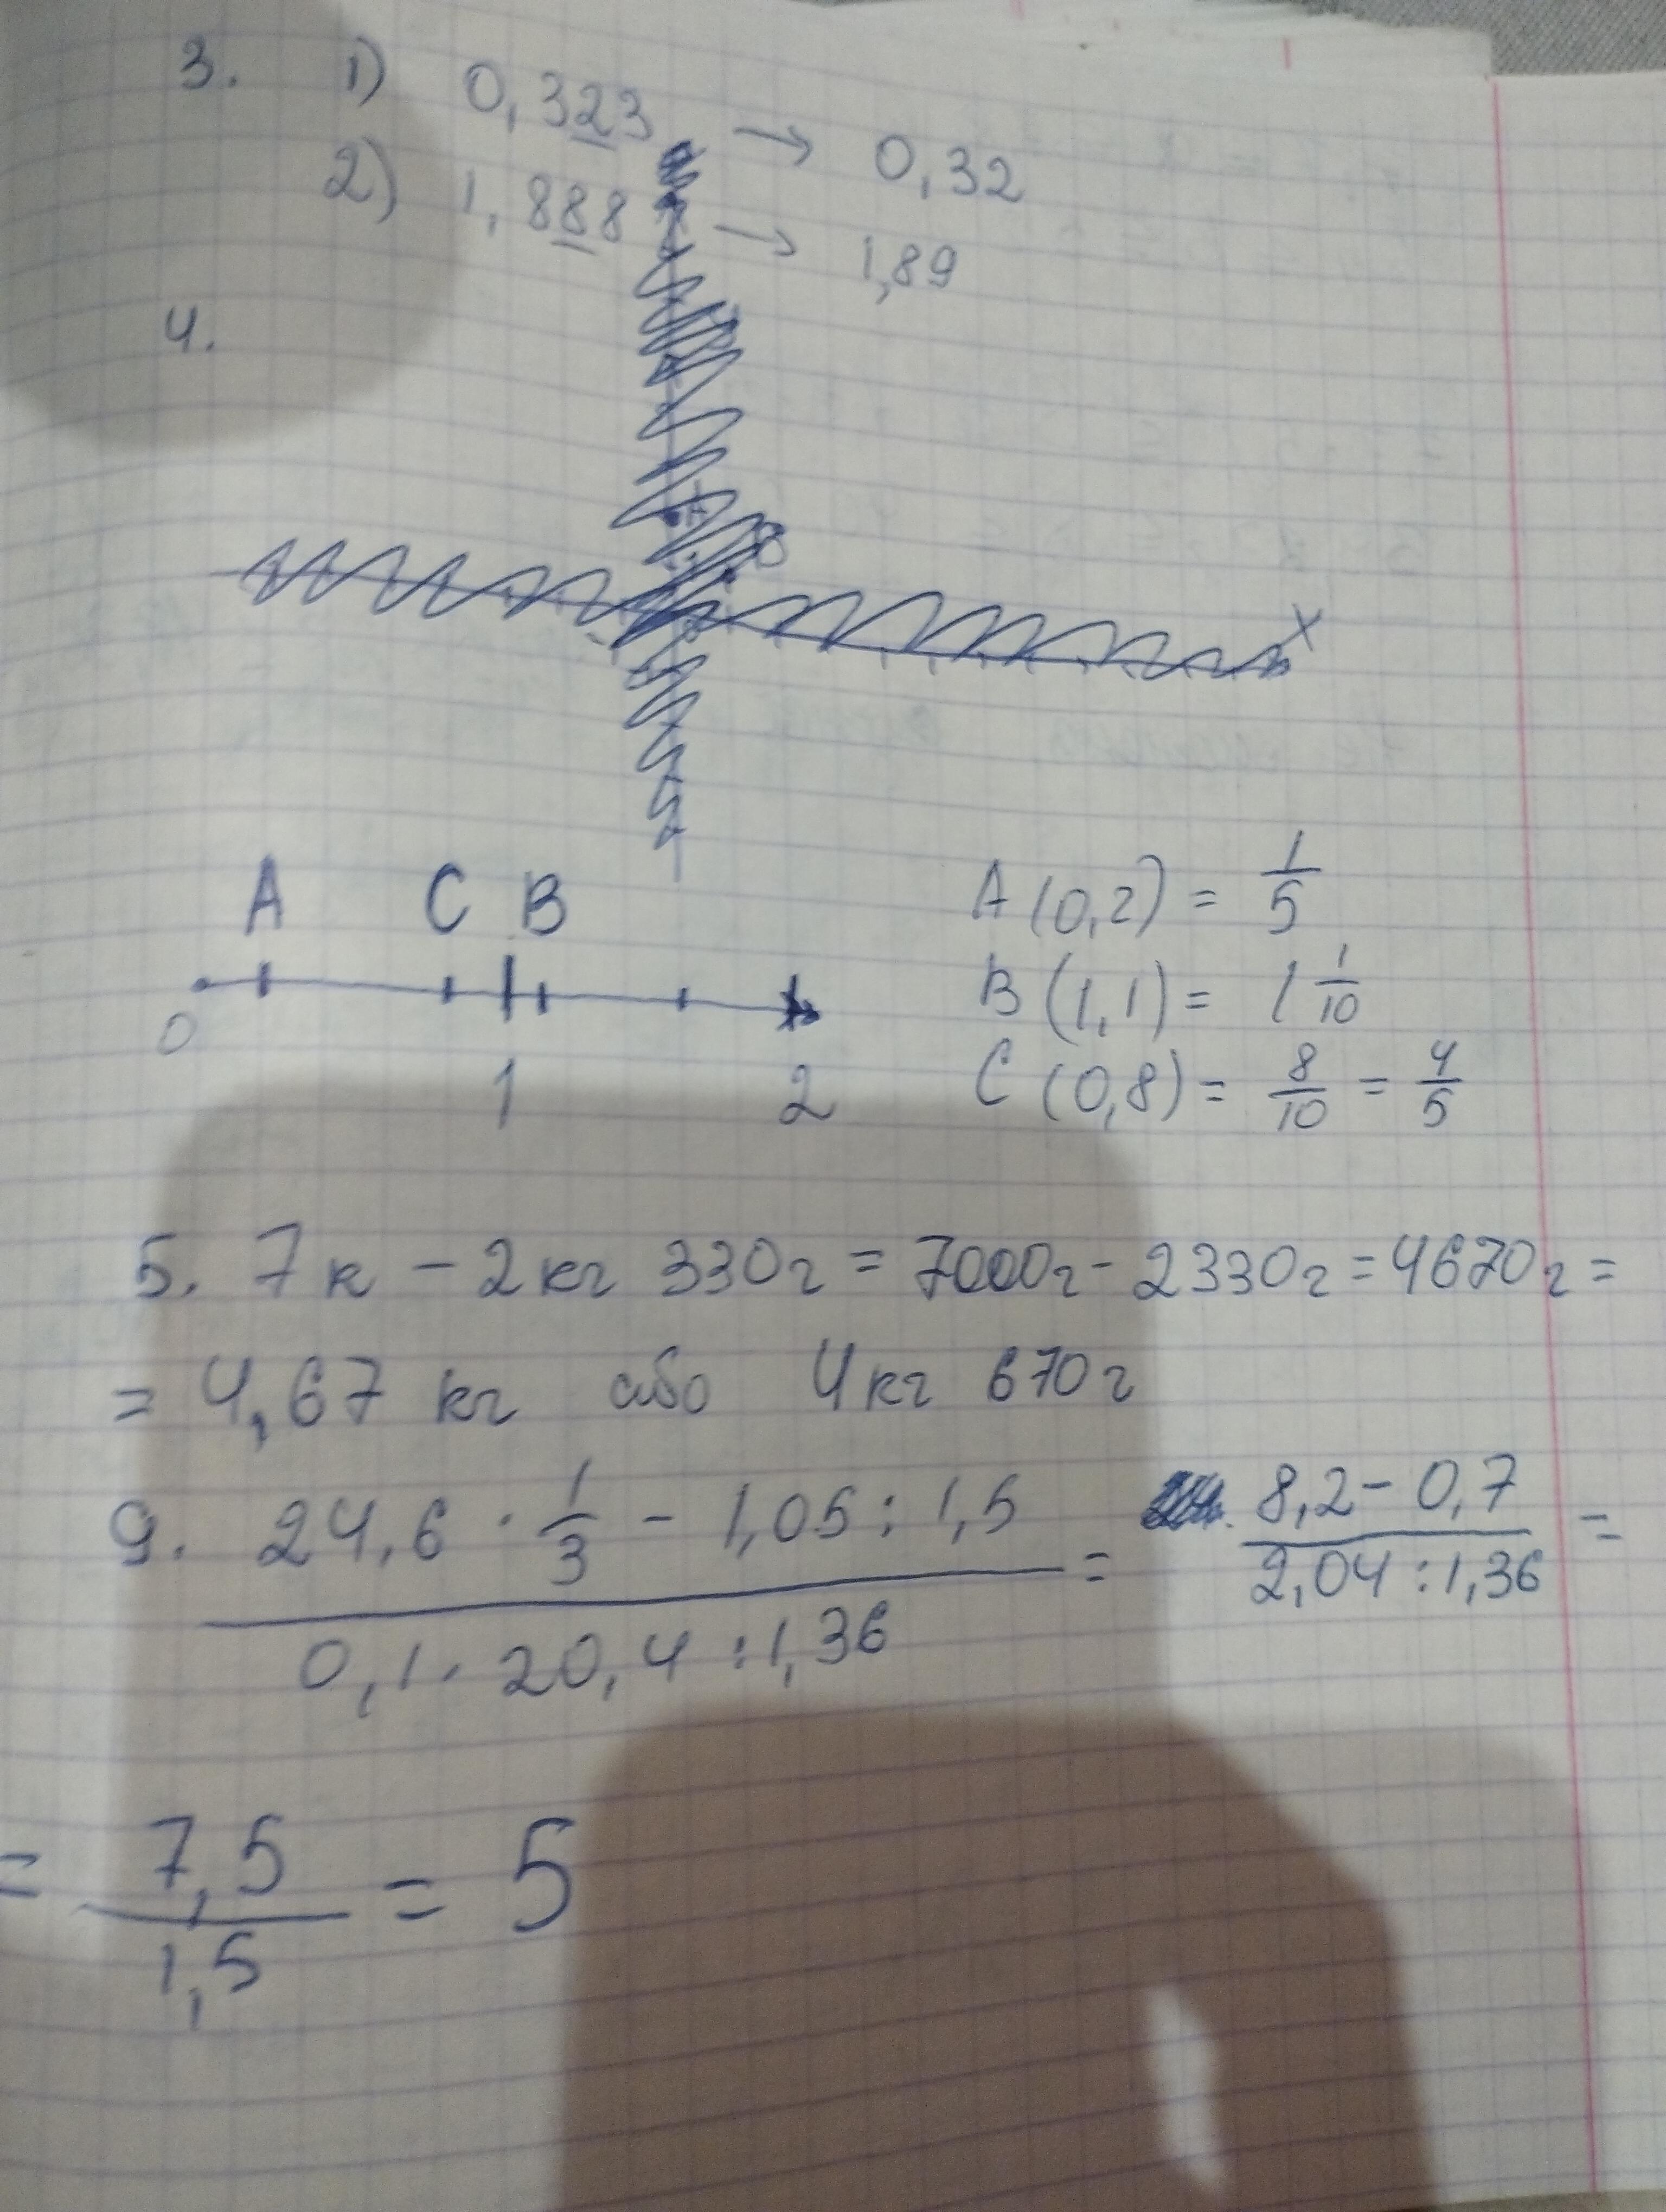 3. 1) 0,323 → 0,32
2) 1,888 → 1,89
4.
x
A C B
0 1 2
A (0,2) = 1/5
B (1,1) = 1 1/10
C (0,8) = 8/10 = 4/5
5. 7к - 2кг 330г = 7000г - 2330г = 4670г =
= 4,67 кг або 4кг 670г
9. (24,6 · 1/3 - 1,05 : 1,5) / (0,1 · 20,4 : 1,36) = (8,2 - 0,7) / (2,04 : 1,36) =
= 7,5/1,5 = 5